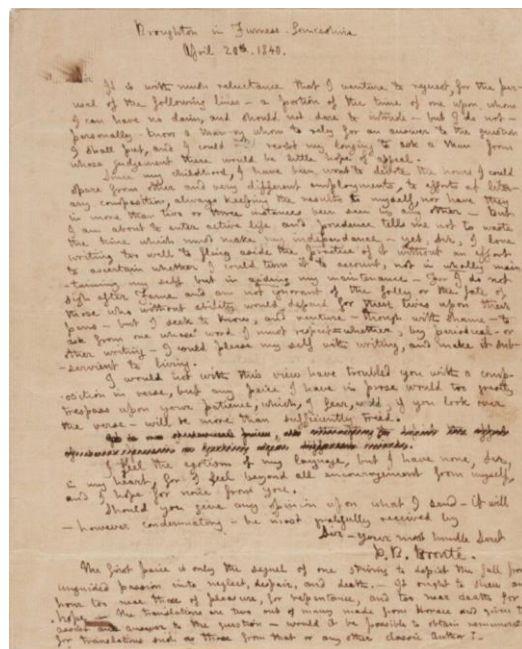 Broughton in Furness - Lancashire
April 20th. 1840.
Sir
It is with much reluctance that I venture to request, for the per-
usal of the following lines - a portion of the time of one upon whom
I can have no claim, and should not dare to intrude - but I do not -
personally - know a man on whom to rely for an answer to the question
I shall put, and I could not resist my longing to ask a man from
whose judgement there would be little hope of appeal.
Since my childhood, I have been wont to devote the hours I could
spare from other and very different employments, to efforts at liter-
ary composition, always keeping the results to myself, nor have they
in more than two or three instances been seen by any other - But
I am about to enter active life, and prudence tells me not to waste
the time which must make my independance - yet, Sir, I love
writing too well to fling aside the practise of it without an effort
to ascertain whether I could turn it to account, not in wholly main-
-taining my self but in aiding my maintenance - for I do not
sigh after Fame and am not ignorant of the folley or the fate of
those who without ability would depend for their lives upon their
pens - but I seek to know, and venture - though with shame - to
ask from one whose word I must respect whether, by periodical - or
other writing - I could please my self with writing, and make it sub-
-servient to living.
I would not with this view have troubled you with a comp-
-osition in verse, but any peice I have in prose would too greatly
trespass upon your patience, which, I fear, wd., if you look over
the verse - will be more than sufficiently tried.
I feel the egotism of my language, but I have none, Sir,
in my heart, for I feel beyond all encouragement from myself,
and I hope for none from you.
Should you give any opinion upon what I send - it will
- however condemnatory - be most gratefully received by
Sir - your most humble Servt
P. B. Bronte.
The first peice is only the sequel of one striving to depict the fall from
unguided passion into neglect, despair, and death. - It ought to shew an
hour too near those of pleasure, for repentance, and too near death for
hope. - The translations are two out of many made from Horace and given to
assist an answer to the question - would it be possible to obtain remunerat
for translations such as those from that or any other classic author? -